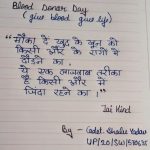 Blood Donor Day
(give blood give life)
"मौका दें खुद के खून को
किसी और के रगों में
दौड़ने का.
ये एक लाजवाब तरीका
है किसी और में
जिंदा रहने का."
Jai Hind
By - Cadet Shalu Yadav
UP/20/SW/